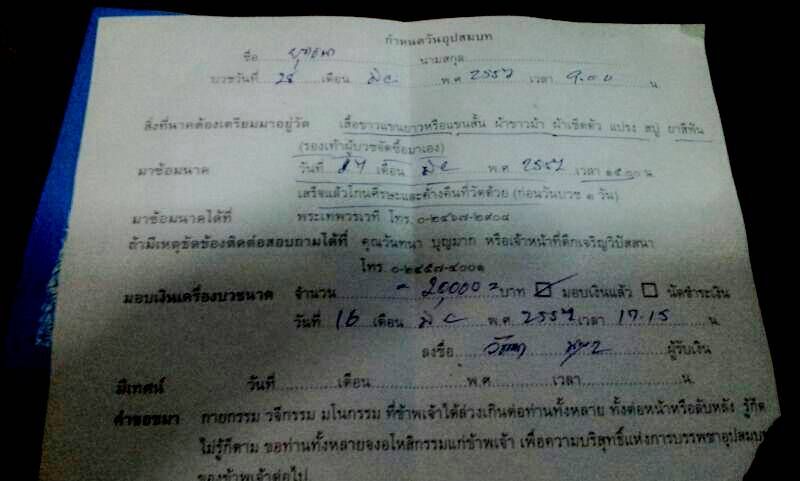 กำหนดวันอุปสมบท
ชื่อ ยุทธนา นามสกุล
บวชวันที่ 28 เดือน มิย พ.ศ 2557 เวลา 9.00 น.
สิ่งที่นาคต้องเตรียมมาอยู่วัด เสื้อขาวแขนยาวหรือแขนสั้น ผ้าขาวม้า ผ้าเช็ดตัว แปรง สบู่ ยาสีฟัน
(รองเท้าผู้บวชจัดซื้อมาเอง)
มาซ้อมนาค วันที่ 27 เดือน มิย พ.ศ 2557 เวลา ๑๕.๐๐ น.
เสร็จแล้วโกนศีรษะและค้างคืนที่วัดด้วย (ก่อนวันบวช ๑ วัน)
มาซ้อมนาคได้ที่ พระเทพวรเวที โทร. ๐-๒๔๖๗-๒๙๐๘
ถ้ามีเหตุขัดข้องติดต่อสอบถามได้ที่ คุณวันทนา บุญมาก หรือเจ้าหน้าที่ตึกเจริญวิปัสสนา
โทร. ๐-๒๔๕๗-๔๐๐๑
มอบเงินเครื่องบวชนาค จำนวน - 20,000 = บาท มอบเงินแล้ว นัดชำระเงิน
วันที่ 16 เดือน มิย พ.ศ 2557 เวลา 17.15 น.
ลงชื่อ ผู้รับเงิน
มีเทศน์ วันที่ เดือน พ.ศ. เวลา น.
คำขอขมา กายกรรม วจีกรรม มโนกรรม ที่ข้าพเจ้าได้ล่วงเกินต่อท่านทั้งหลาย ทั้งต่อหน้าหรือลับหลัง รู้ก็ด
ไม่รู้ก็ตาม ขอท่านทั้งหลายจงอโหสิกรรมแก่ข้าพเจ้า เพื่อความบริสุทธิ์แห่งการบรรพชาอุปสมบท
ของข้าพเจ้าต่อไป